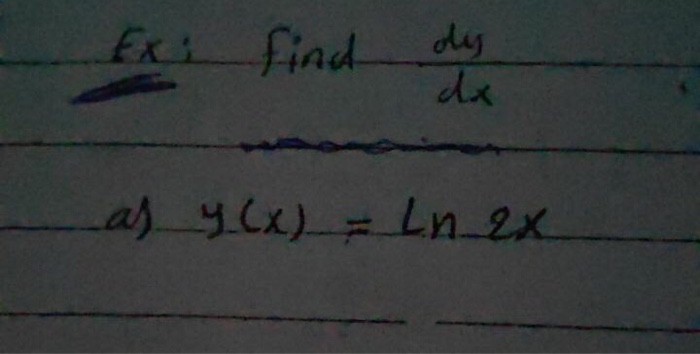 Ex: find dy/dx
a) y(x) = Ln 2x